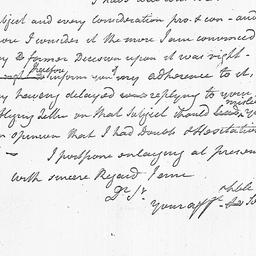 bject and every consideration pro & con - and
ore I consider it the more I am convinced
my former Decision upon it was right -
therefore
inform you my adherence to it,
my having delayed replying to your
obliging letter on that subject should lead
an opinion that I had doubt & Hesitation
I postpone enlarging at present
with sincere Regard I am
Dr Sr
Your afft